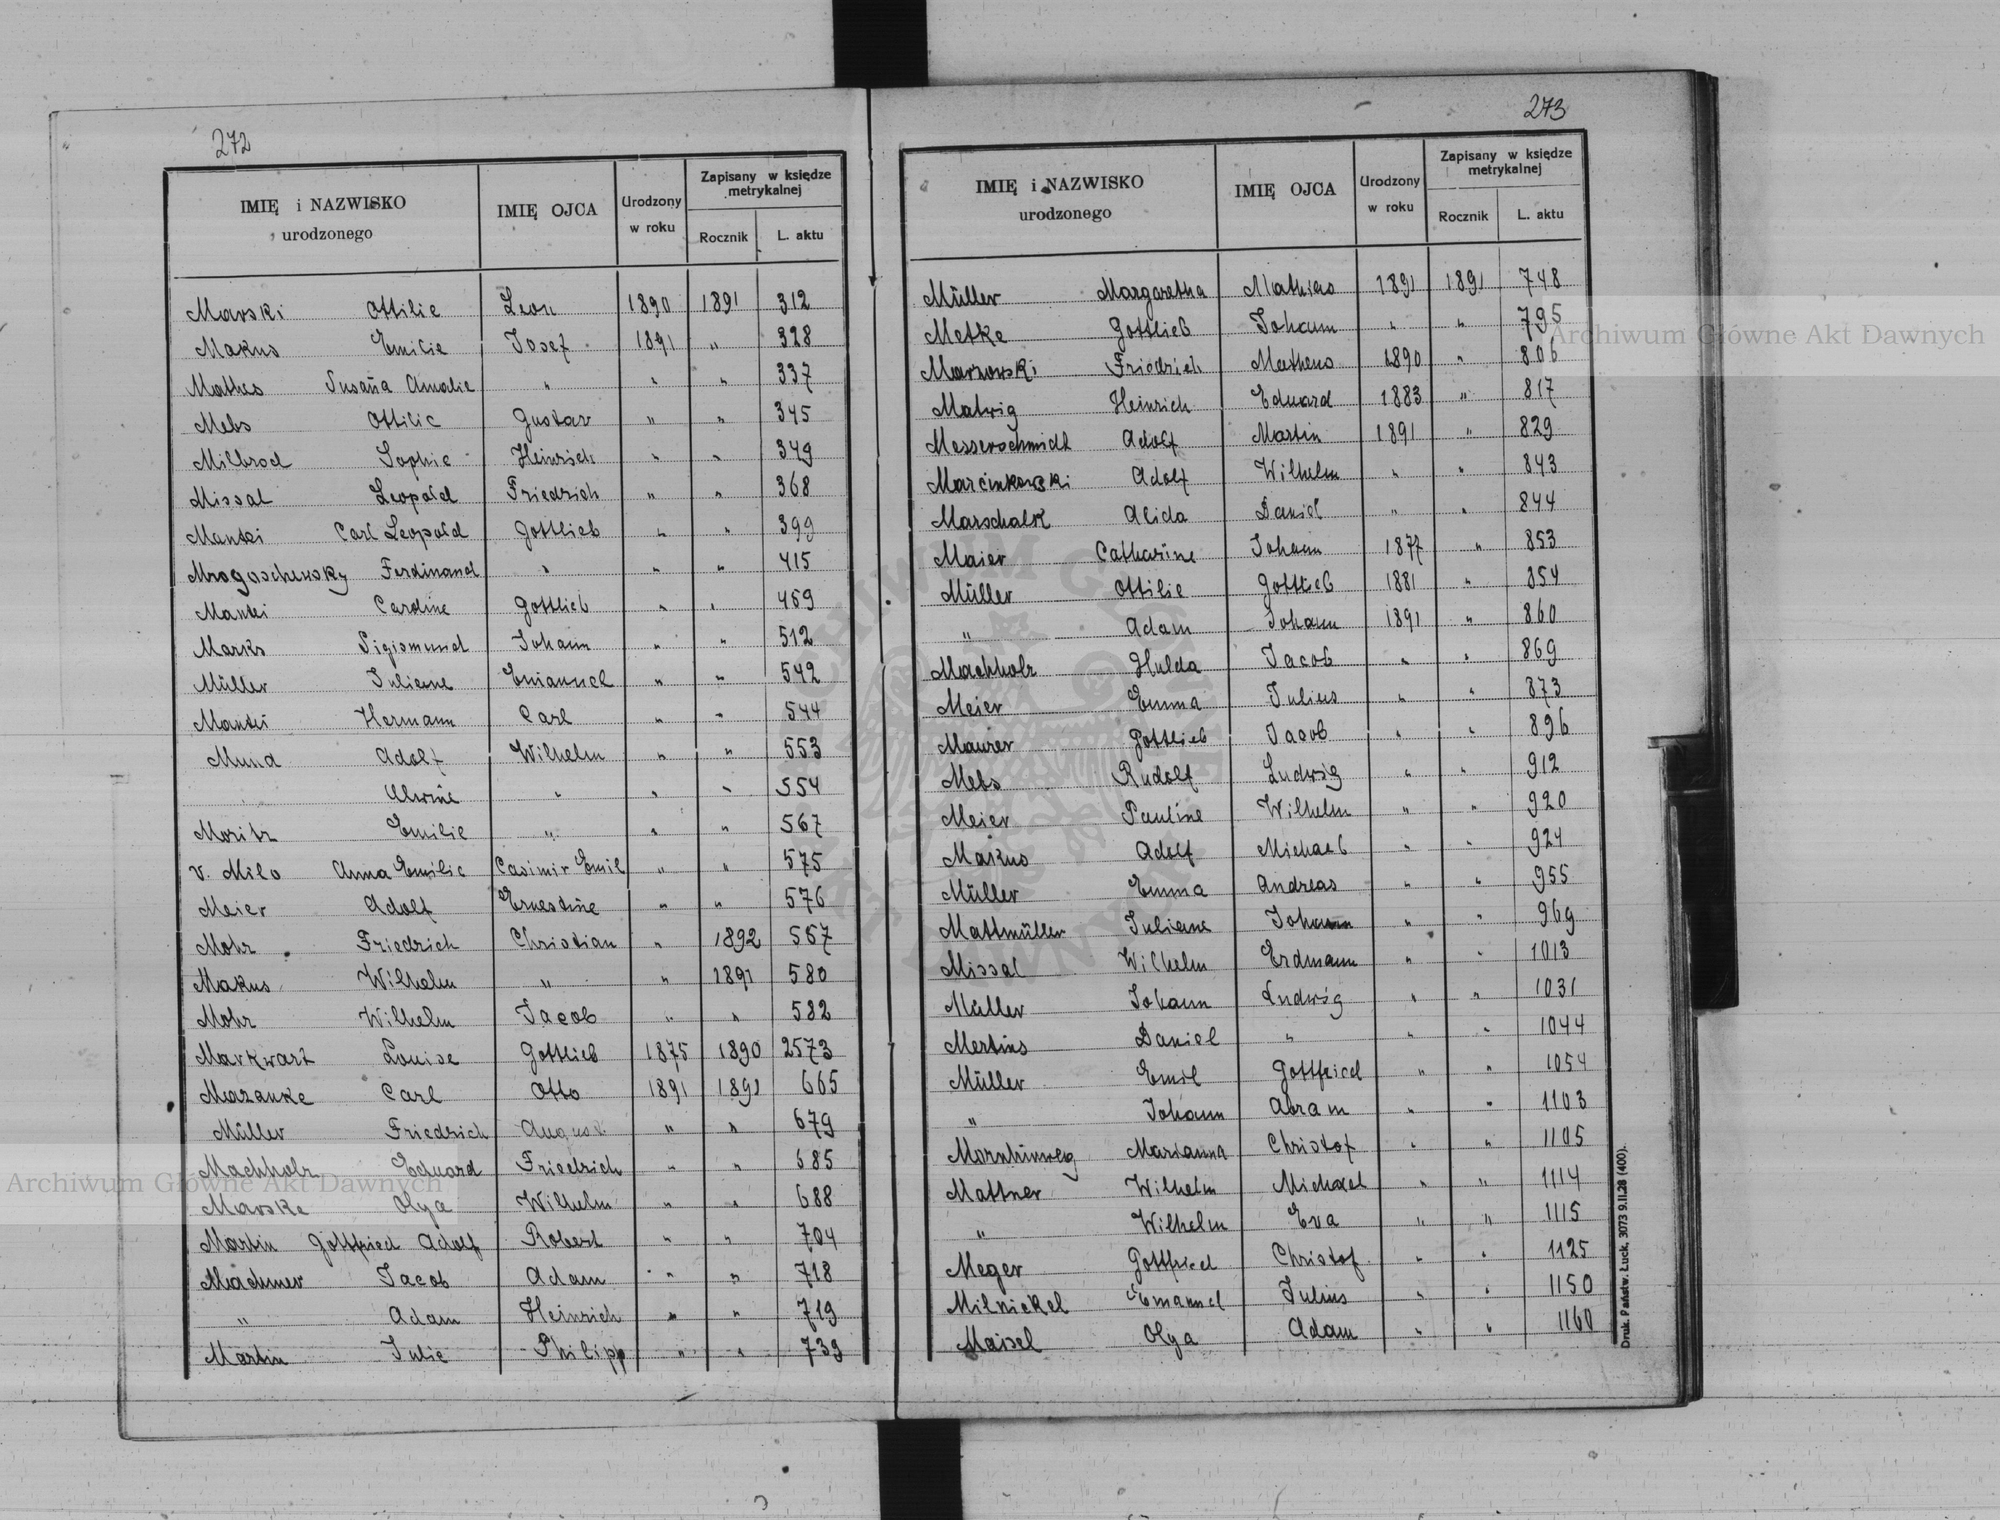 272
IMIĘ i NAZWISKO urodzonego IMIĘ OJCA Urodzony w roku Zapisany w księdze metrykalnej Rocznik L. aktu
Marski Ottilie Leon 1890 1891 312
Makus Emilie Josef 1891 " 328
Mathes Susaña Amalie " " " 337
Mebs Ottilie Gustav " " 345
Milbrod Sophie Heinrich " " 349
Missal Leopold Friedrich " " 368
Mantei Carl Leopold Gottlieb " " 399
Mrogoschewsky Ferdinand " " " 415
Mantei Caroline Gottlieb " " 469
Marks Sigismund Johann " " 512
Müller Juliane Emanuel " " 542
Mantei Hermann Carl " " 544
Mund Adolf Wilhelm " " 553
Alwine " " " 554
Moritz Emilie " " " 567
v. Milo Anna Emilie Casimir Emil " " 575
Meier Adolf Ernestine " " 576
Mohr Friedrich Christian " 1892 567
Makus Wilhelm " " 1891 580
Mohr Wilhelm Jacob " " 582
Markwart Louise Gottlieb 1875 1890 2573
Mazanke Carl Otto 1891 1891 665
Müller Friedrich August " " 679
Machholz Eduard Friedrich " " 685
Marske Olga Wilhelm " " 688
Martin Gottfried Adolf Robert " " 704
Machmer Jacob Adam " " 718
" Adam Heinrich " " 719
Martin Julie Philipp " " 739
273
IMIĘ i NAZWISKO urodzonego IMIĘ OJCA Urodzony w roku Zapisany w księdze metrykalnej Rocznik L. aktu
Müller Margaretha Mathias 1891 1891 748
Metke Gottlieb Johann " " 795
Marzowski Friedrich Matheus 1890 " 806
Malwig Heinrich Eduard 1883 " 817
Messerschmidt Adolf Martin 1891 " 829
Marcinkowski Adolf Wilhelm " " 843
Marschalk Alida Daniel " " 844
Maier Catharine Johann 1877 " 853
Müller Ottilie Gottlieb 1881 " 854
" Adam Johann 1891 " 860
Machholz Hulda Jacob " " 869
Meier Emma Julius " " 873
Maurer Gottlieb Jacob " " 896
Mebs Rudolf Ludwig " " 912
Meier Pauline Wilhelm " " 920
Makus Adolf Michael " " 924
Müller Emma Andreas " " 955
Mattmüller Juliane Johann " " 969
Missal Wilhelm Erdmann " " 1013
Müller Johann Ludwig " " 1031
Mertins Daniel " " " 1044
Müller Emil Gottfried " " 1054
" Johann Abram " " 1103
Mornhinweg Marianna Christof " " 1105
Mattner Wilhelm Michael " " 1114
" Wilhelm Eva " " 1115
Meger Gottfried Christof " " 1125
Milnickel Emanuel Julius " " 1150
Maisel Olga Adam " " 1160
Druk. Państw. Łuck, 3073 9.II.28 (400).
Archiwum Główne Akt Dawnych
Archiwum Główne Akt Dawnych